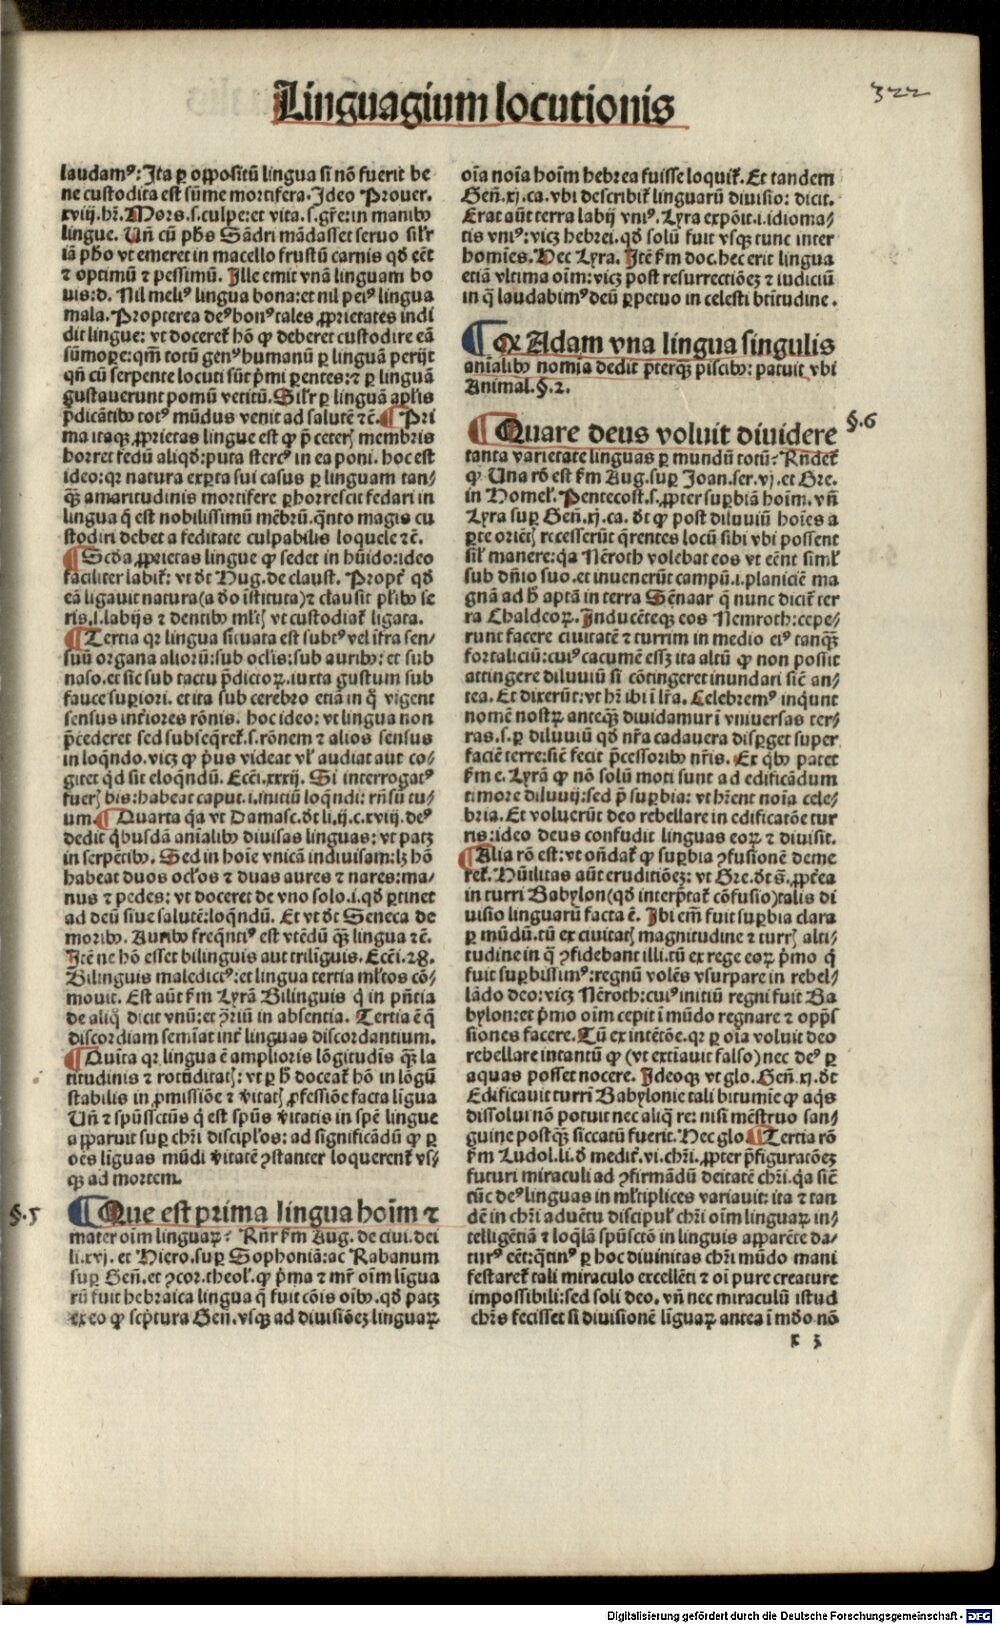 322
Linguagium locutionis
laudamꝰ: Ita ꝑ oppositū lingua si nō fuerit be
ne custodita est sūme mortifera. Ideo Prouer.
xviij. hr̄. Mors .s. culpe: et vita .s. gr̄e: in manibꝰ
lingue. Un̄ cū phs Sādri mādasset seruo sil'r
iā pho vt emeret in macello frustū carnis qd̄ eēt
⁊ optimū ⁊ pessimū. Ille emit vnā linguam bo
uis: d. Nil meliꝰ lingua bona: et nil peiꝰ lingua
mala. Propterea deꝰ honꝰ tales ꝓprietates indi
dit lingue: vt doceret᷑ hō ꝙ deberet custodire eā
sūmopere: qm̄ totū genꝰ humanū ꝑ linguā perijt
qn̄ cū serpente locuti sūt p̄mi parentes: ⁊ ꝑ linguā
gustauerunt pomū vetitū. Sil'r ꝑ linguā apl'is
p̄dicātibꝰ totꝰ mūdus venit ad salutē ⁊c̄. ¶ Pri
ma itaqꝫ ꝓprietas lingue est ꝙ p̄ ceter{ membris
horret fedū aliqd̄: puta stercꝰ in ea poni. hoc est
ideo: qr natura exꝑta sui casus ꝑ linguam tan/
qꝫ̄ amaritudinis mortifere ꝑhorrescit fedari in
lingua q̄ est nobilissimū mēbrū. q̄nto magis cu
stodiri debet a feditate culpabilis loquele ⁊c̄.
¶ Scd̄a ꝓprietas lingue ꝙ sedet in hūido: ideo
faciliter labit᷑: vt dt̄ Hug. de claust. Propt̄ qd̄
eā ligauit natura (a d̄o īstituta) ⁊ clausit pl'ibꝰ se
ris .i. labijs ⁊ dentibꝰ ml't{ vt custodiat᷑ ligata.
¶ Tertia qr lingua situata est subtꝰ vel īfra sen/
suū organa aliorū: sub ocl'is: sub auribꝰ: et sub
naso. et sic sub tactu p̄dictoꝝ. iuxta gustum sub
fauce suꝑiori. et ita sub cerebro etiā in q̄ vigent
sensus interiores rōnis. hoc ideo: vt lingua non
p̄cederet sed subseq̄ret᷑ .s. rōnem ⁊ alios sensus
in loqn̄do. vicꝫ ꝙ p̄us videat vl' audiat aut co/
gitet qd̄ sit eloqn̄dū. Ecc̄i. xxxij. Si interrogatꝰ
fuer{ bis: habeat caput .i. initiū loqn̄di: rn̄sū tu/
um. ¶ Quarta q̄a vt Damasc. dt̄ li. ij. c. xviij. deꝰ
dedit q̄busdā anīalibꝰ diuisas linguas: vt patꝫ
in serpētibꝰ. Sed in hoīe vnicā indiuisam: lꝫ hō
habeat duos ocl'os ⁊ duas aures ⁊ nares: ma/
nus ⁊ pedes: vt doceret de vno solo .i. qd̄ ꝑtinet
ad deū siue salutē: loqn̄dū. Et vt dt̄ Seneca de
moribꝰ. Auribꝰ freq̄ntiꝰ est vtēdū qꝫ̄ lingua ⁊c̄.
Itē ne hō esset bilinguis aut triliguis. Ecc̄i. 28.
Bilinguis maledictꝰ: et lingua tertia ml'tos cō/
mouit. Est aūt fm̄ Lyrā Bilinguis q̄ in pn̄tia
de aliq̄ dicit vnū: et ꝯriū in absentia. Tertia ē q̄
discordiam semīat int̄ linguas discordantium.
¶ Quīta qr lingua ē amplioris lōgitudīs qꝫ̄ la
titudinis ⁊ rotūditat{: vt ꝑ h̄ doceat᷑ hō in lōgū
stabilis in ꝓmissiōe ⁊ v̄itat{ ꝓfessiōe facta līgua
Un̄ ⁊ spūssctūs q̄ est spūs v̄itatis in spē lingue
apparuit suꝑ chr̄i discipl'os: ad significādū ꝙ ꝑ
oēs līguas mūdi v̄itatē ꝯstanter loquerent᷑ vs/
qꝫ ad mortem.
§.5
¶ Que est prima lingua hoīm ⁊
mater oīm linguaꝝ? Rn̄r fm̄ Aug. de ciui. dei
li. xvj. et Hiero. suꝑ Sophoniā: ac Rabanum
suꝑ Gen̄. et ꝯcor. theol'. ꝙ p̄ma ⁊ mr̄ oīm līgua
rū fuit hebraica lingua q̄ fuit cōis oībꝰ. qd̄ patꝫ
ex eo ꝙ scp̄tura Gen̄. vsqꝫ ad diuisiōeꝫ linguaꝝ
oīa noīa hoīm hebrea fuisse loquit᷑. Et tandem
Gen̄. xj. ca. vbi describit᷑ linguarū diuisio: dicit.
Erat aūt terra labij vniꝰ. Lyra expōit .i. idioma/
tis vniꝰ: vicꝫ hebrei. qd̄ solū fuit vsqꝫ tunc inter
homīes. Hec Lyra. Itē fm̄ doc. hec erit lingua
etiā vltima oīm: vicꝫ post resurrectiōeꝫ ⁊ iudiciū
in q̄ laudabimꝰ deū ꝑpetuo in celesti btītudine.
¶ Ex Adam vna lingua singulis
anīalibꝰ nomīa dedit p̄terqꝫ piscibꝰ: patuit vbi
Animal. §. 2.
§.6
¶ Quare deus voluit diuidere
tanta varietate linguas ꝑ mundū totū? Rn̄det᷑
ꝙ Una rō est fm̄ Aug. suꝑ Joan. ser. vj. et Gre.
in Homel'. Pentecost. s. ꝓpter suꝑbiā hoīm. vn̄
Lyra suꝑ Gen̄. xj. ca. dt̄ ꝙ post diluuiū hoīes a
ꝑte oriēt{ recesserūt q̄rentes locū sibi vbi possent
sil' manere: q̄a Nēroth volebat eos vt eēnt siml'
sub dn̄io suo. et inuenerūt campū .i. planiciē ma
gnā ad h̄ aptā in terra Sēnaar q̄ nunc dicit᷑ ter
ra Chaldeoꝝ. Inducēteqꝫ eos Nemroth: cepe/
runt facere ciuitatē ⁊ turrim in medio eiꝰ tanqꝫ̄
fortaliciū: cuiꝰ cacumē essꝫ ita altū ꝙ non possit
attingere diluuiū si cōtingeret inundari sic̄ an/
tea. Et dixerūt: vt hr̄ ibi ī lr̄a. Celebremꝰ inqunt
nomē nostꝝ anteqꝫ̄ diuidamur ī vniuersas ter/
ras .s. ꝑ diluuiū qd̄ nr̄a cadauera disꝑget super
faciē terre: sic̄ fecit p̄cessoribꝰ nr̄is. Ex q̄bꝰ patet
fm̄ e. Lyrā ꝙ nō solū moti sunt ad edificādum
timore diluuij: sed p̄ suꝑbia: vt hr̄ent noīa cele/
bria. Et voluerūt deo rebellare in edificatōe tur
ris: ideo deus confudit linguas eoꝝ ⁊ diuisit.
¶ Alia rō est: vt on̄dat᷑ ꝙ suꝑbia ꝯfusionē deme
ret᷑. Hūilitas aūt eruditiōeꝫ: vt Gre. dt̄ s. ꝓpt̄ea
in turri Babylon (qd̄ interp̄tat᷑ cōfusio) talis di
uisio linguarū facta ē. Ibi em̄ fuit suꝑbia clara
ꝑ mūdū. tū ex ciuitat{ magnitudine ⁊ turr{ alti/
tudine in q̄ ꝯfidebant illi. tū ex rege eoꝝ p̄mo q̄
fuit suꝑbissimꝰ: regnū volēs vsurpare in rebel/
lādo deo: vicꝫ Nēroth: cuiꝰ initiū regni fuit Ba
bylon: et p̄mo oīm cepit ī mūdo regnare ⁊ opp̄s
siones facere. Tū ex intētōe. qr ꝑ oīa voluit deo
rebellare intantū ꝙ (vt extīauit falso) nec deꝰ ꝑ
aquas posset nocere. Ideoqꝫ vt glo. Gen̄. xj. dt̄
Edificauit turrī Babylonie tali bitumīe ꝙ aq̄s
dissolui nō potuit nec aliq̄ re: nisi mēstruo san/
guine postqꝫ̄ siccatū fuerit. Hec glo. ¶ Tertia rō
fm̄ Ludol. li. d̄ medit᷑. vi. chr̄i. ꝓpter p̄figuratōeꝫ
futuri miraculi ad ꝯfirmādū deitatē chr̄i. q̄a sic̄
tūc deꝰ linguas in ml'tiplices variauit: ita ⁊ tan
dē in chr̄i aduētu discipul' chr̄i oīm linguaꝝ in/
telligētiā ⁊ loq̄lā spūsctō in linguis apparēte da/
turꝰ eēt: q̄tinꝰ ꝑ hoc diuinitas chr̄i mūdo mani
festaret᷑ tali miraculo excellēti ⁊ oī pure creature
impossibili: sed soli deo. vn̄ nec miraculū istud
chr̄s fecisset si diuisionē līguaꝝ antea ī mūdo nō
r 3
Digitalisierung gefördert durch die Deutsche Forschungsgemeinschaft - DFG